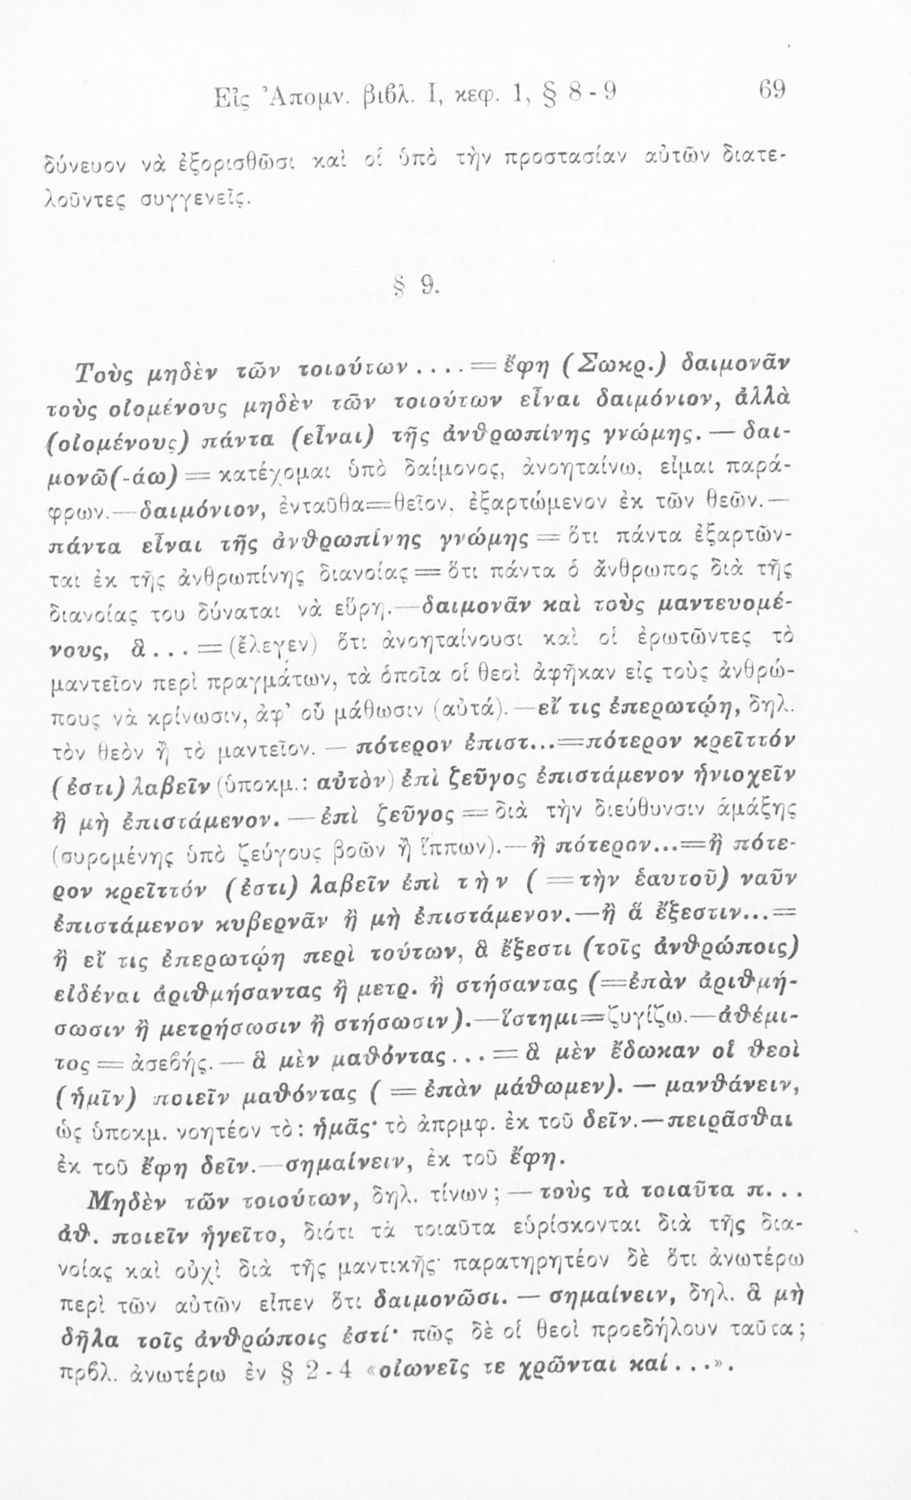 Εἰς Ἀπομν. βιβλ. I, κεφ. 1, § 8-9 69
δύνευον νὰ ἐξορισθῶσι καὶ οἱ ὑπὸ τὴν προστασίαν αὐτῶν διατε-
λοῦντες συγγενεῖς.
§ 9.
Τοὺς μηδὲν τῶν τοιούτων .... = ἔφη (Σωκρ.) δαιμονᾶν
τοὺς οἰομένους μηδὲν τῶν τοιούτων εἶναι δαιμόνιον, ἀλλὰ
(οἰομένους) πάντα (εἶναι) τῆς ἀνθρωπίνης γνώμης. — δαι-
μονῶ(-άω) = κατέχομαι ὑπὸ δαίμονος, ἀνοηταίνω, εἶμαι παρά-
φρων.— δαιμόνιον, ἐνταῦθα=θεῖον, ἐξαρτώμενον ἐκ τῶν θεῶν.—
πάντα εἶναι τῆς ἀνθρωπίνης γνώμης = ὅτι πάντα ἐξαρτῶν-
ται ἐκ τῆς ἀνθρωπίνης διανοίας = ὅτι πάντα ὁ ἄνθρωπος διὰ τῆς
διανοίας του δύναται νὰ εὕρῃ.— δαιμονᾶν καὶ τοὺς μαντευομέ-
νους, ἃ ... = (ἔλεγεν) ὅτι ἀνοηταίνουσι καὶ οἱ ἐρωτῶντες τὸ
μαντεῖον περὶ πραγμάτων, τὰ ὁποῖα οἱ θεοὶ ἀφῆκαν εἰς τοὺς ἀνθρώ-
πους νὰ κρίνωσιν, ἀφ' οὗ μάθωσιν (αὐτά). — εἴ τις ἐπερωτῴη, δηλ.
τὸν θεὸν ἢ τὸ μαντεῖον. — πότερον ἐπιστ...=πότερον κρεῖττόν
(ἐστι) λαβεῖν (ὑποκμ.: αὐτὸν) ἐπὶ ζεῦγος ἐπιστάμενον ἡνιοχεῖν
ἢ μὴ ἐπιστάμενον. — ἐπὶ ζεῦγος = διὰ τὴν διεύθυνσιν ἁμάξης
(συρομένης ὑπὸ ζεύγους βοῶν ἢ ἵππων).— ἢ πότερον...=ἢ πότε-
ρον κρεῖττόν (ἐστι) λαβεῖν ἐπὶ τὴν (=τὴν ἑαυτοῦ) ναῦν
ἐπιστάμενον κυβερνᾶν ἢ μὴ ἐπιστάμενον.—ἢ ἃ ἔξεστιν...=
ἢ εἴ τις ἐπερωτῴη περὶ τούτων, ἃ ἔξεστι (τοῖς ἀνθρώποις)
εἰδέναι ἀριθμήσαντας ἢ μετρ. ἢ στήσαντας (=ἐπὰν ἀριθμή-
σωσιν ἢ μετρήσωσιν ἢ στήσωσιν).—ἵστημι=ζυγίζω.—ἀθέμι-
τος = ἀσεβής. — ἃ μὲν μαθόντας... = ἃ μὲν ἔδωκαν οἱ θεοὶ
(ἡμῖν) ποιεῖν μαθόντας ( = ἐπὰν μάθωμεν). — μανθάνειν,
ὡς ὑποκμ. νοητέον τὸ: ἡμᾶς· τὸ ἀπρμφ. ἐκ τοῦ δεῖν.—πειρᾶσθαι
ἐκ τοῦ ἔφη δεῖν.—σημαίνειν, ἐκ τοῦ ἔφη.
Μηδὲν τῶν τοιούτων, δηλ. τίνων; — τοὺς τὰ τοιαῦτα π...
ἀθ. ποιεῖν ἡγεῖτο, διότι τὰ τοιαῦτα εὑρίσκονται διὰ τῆς δια-
νοίας καὶ οὐχὶ διὰ τῆς μαντικῆς· παρατηρητέον δὲ ὅτι ἀνωτέρω
περὶ τῶν αὐτῶν εἶπεν ὅτι δαιμονῶσι. — σημαίνειν, δηλ. ἃ μὴ
δῆλα τοῖς ἀνθρώποις ἐστί· πῶς δὲ οἱ θεοὶ προεδήλουν ταῦτα;
πρβλ. ἀνωτέρω ἐν § 2-4 «οἰωνεῖς τε χρῶνται καί...».